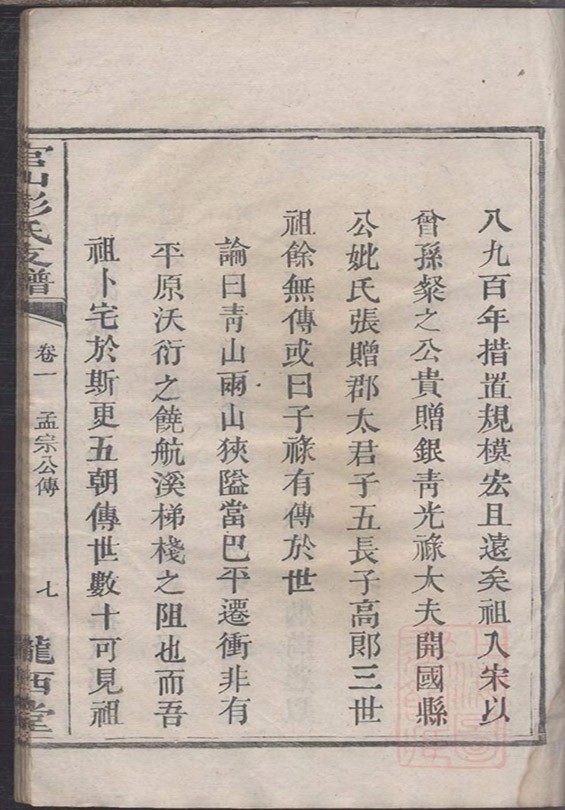 八九百年措置規模宏且遠矣祖入宋以
曾孫粲之公貴贈銀青光祿大夫開國縣
公妣氏張贈郡太君子五長子高郎三世
祖餘無傳或曰子祿有傳於世
論曰青山兩山狹隘當巴平遷衝非有
平原沃衍之饒航溪梯棧之阻也而吾
祖卜宅於斯更五朝傳世數十可見祖
官山彭氏支譜
卷一 孟宗公傳 七
隴西堂